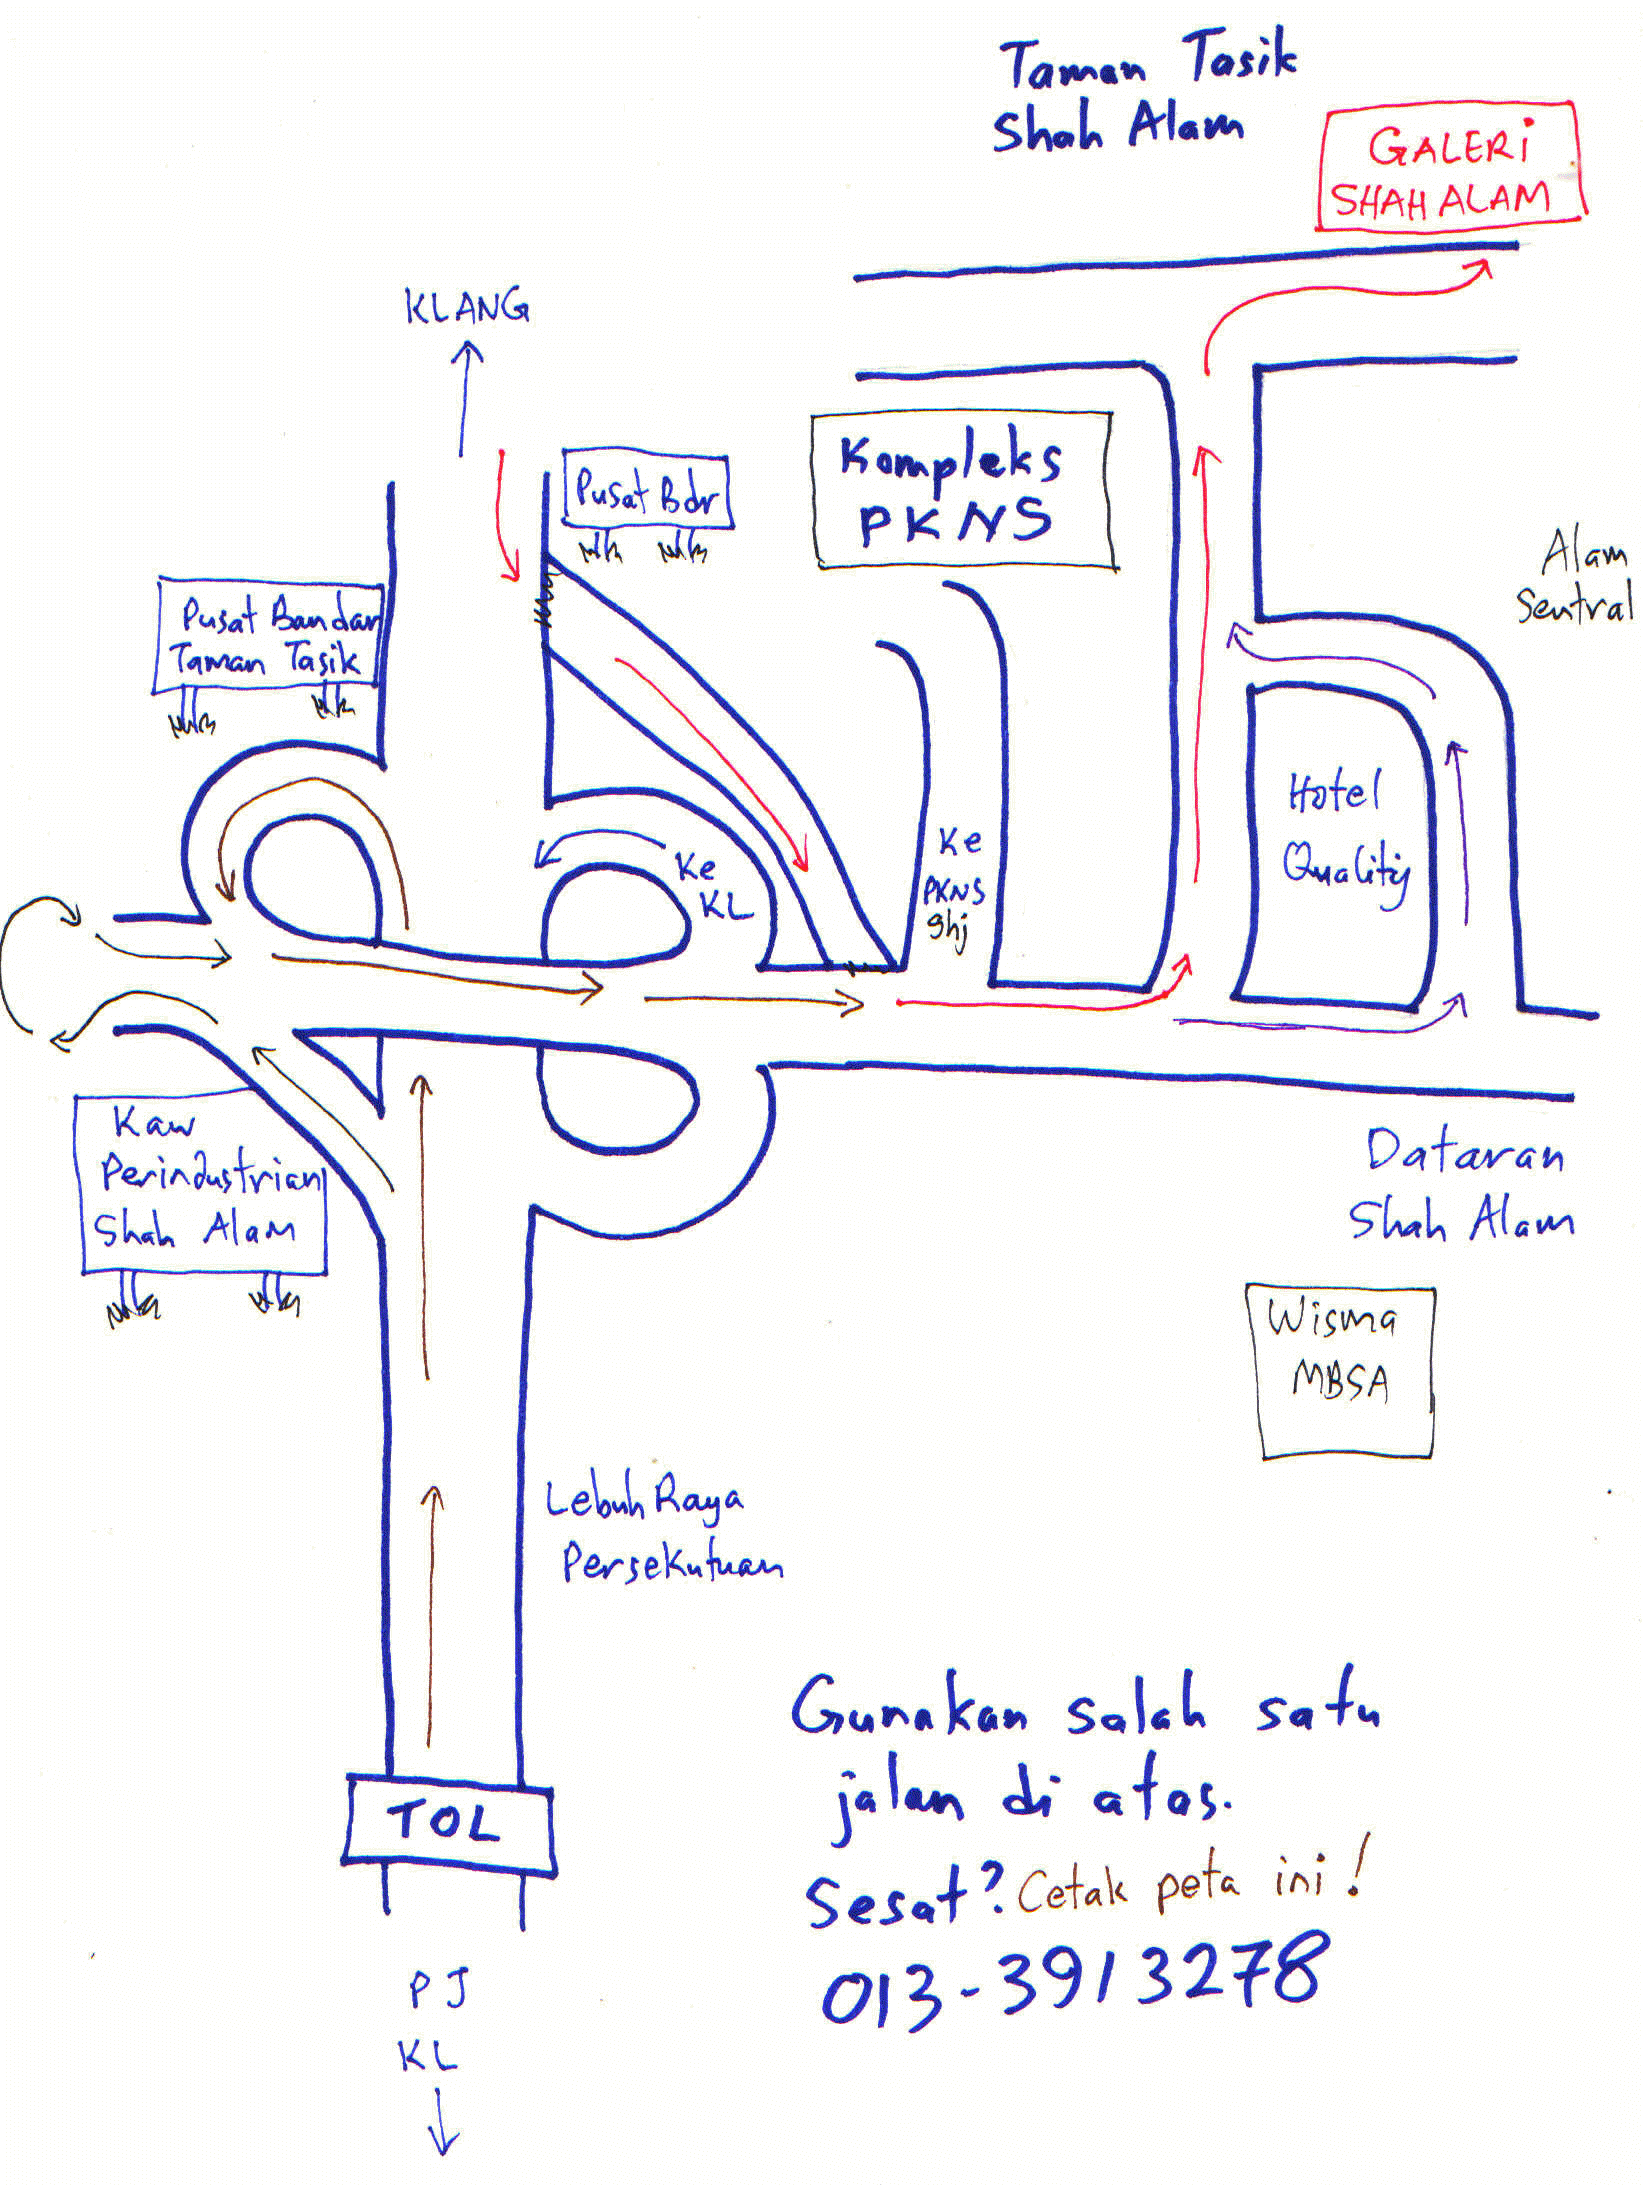 Taman Tasik
Shah Alam
GALERI
SHAH ALAM
KLANG
Pusat Bdr
Kompleks
PKNS
Alam
Sentral
Pusat Bandar
Taman Tasik
Hotel
Quality
Ke
KL
Ke
PKNS
shj
Kaw
Perindustrian
Shah Alam
Dataran
Shah Alam
Wisma
MBSA
Lebuh Raya
Persekutuan
TOL
Gunakan salah satu
jalan di atas.
Sesat? Cetak peta ini!
013-3913278
PJ
KL